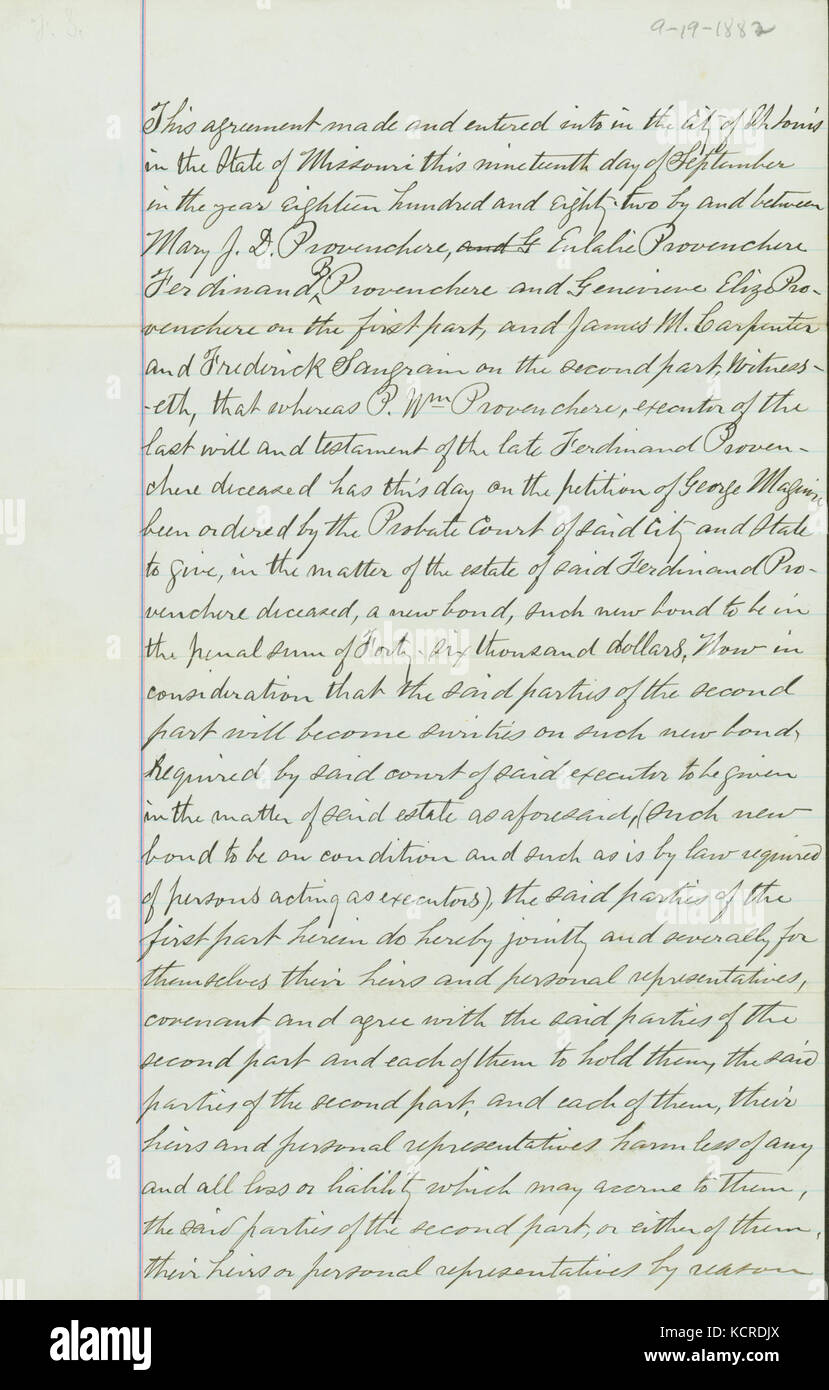 9-19-1882
This agreement made and entered into in the City of St Louis
in the State of Missouri this nineteenth day of September
in the year eighteen hundred and eighty-two by and between
Mary J. D. Provenchere, and G Eulalie Provenchere
Ferdinand B Provenchere and Genevieve Eliza Pro-
venchere on the first part, and James M. Carpenter
and Frederick Saugrain on the second part, Witness-
-eth, that whereas P. Wm Provenchere, executor of the
last will and testament of the late Ferdinand Proven-
chere deceased has this day on the petition of George Maguire
been ordered by the Probate Court of said City and State
to give, in the matter of the estate of said Ferdinand Pro-
venchere deceased, a new bond, such new bond to be in
the penal sum of Forty-six thousand dollars, Now in
consideration that the said parties of the second
part will become surities on such new bond,
Required by said court of said executor to be given
in the matter of said estate as aforesaid, (such new
bond to be on condition and such as is by law required
of persons acting as executors), the said parties of the
first part herein do hereby jointly and severally for
themselves their heirs and personal representatives,
covenant and agree with the said parties of the
second part and each of them to hold them, the said
parties of the second part, and each of them, their
heirs and personal representatives harmless of any
and all loss or liability which may accrue to them,
the said parties of the second part, or either of them,
their heirs or personal representatives by reason
alamy
Image ID: KCRDJX
www.alamy.com